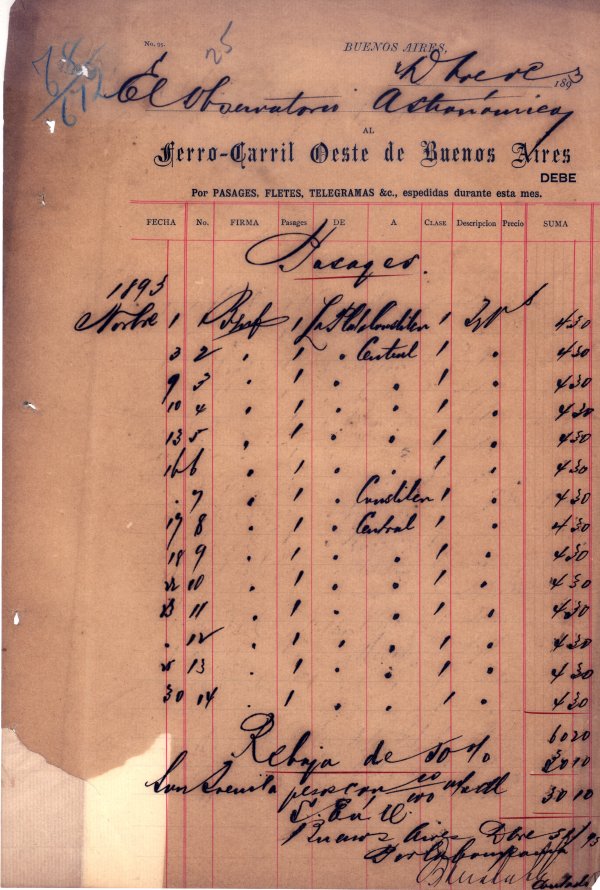 No. 95.
25
BUENOS AIRES,
Dbre de 1893
El Observatorio Astronómico
AL
Ferro-Carril Oeste de Buenos Aires
DEBE
Por PASAGES, FLETES, TELEGRAMAS &c., espedidas durante esta mes.
FECHA No. FIRMA Pasages DE A CLASE Descripcion Precio SUMA
Pasages.
1893
Novbre 1 1 La Plata Constitcn 1 430
3 2 " 1 " Central 1 " 430
9 3 " 1 " " 1 " 430
10 4 " 1 " " 1 " 430
13 5 " 1 " " 1 " 430
16 6 " 1 " " 1 " 430
" 7 " 1 " Constitcn 1 " 430
17 8 " 1 " Central 1 " 430
18 9 " 1 " " 1 " 430
22 10 " 1 " " 1 " 430
23 11 " 1 " " 1 " 430
" 12 " 1 " " 1 " 430
25 13 " 1 " " 1 " 430
30 14 " 1 " " 1 " 430
6020
Rebaja de 50 % 3010
Son treinta pesos con 10/100 m/n 3010
S. E. ú O.
Buenos Aires Dbre 93
Por la Compañia